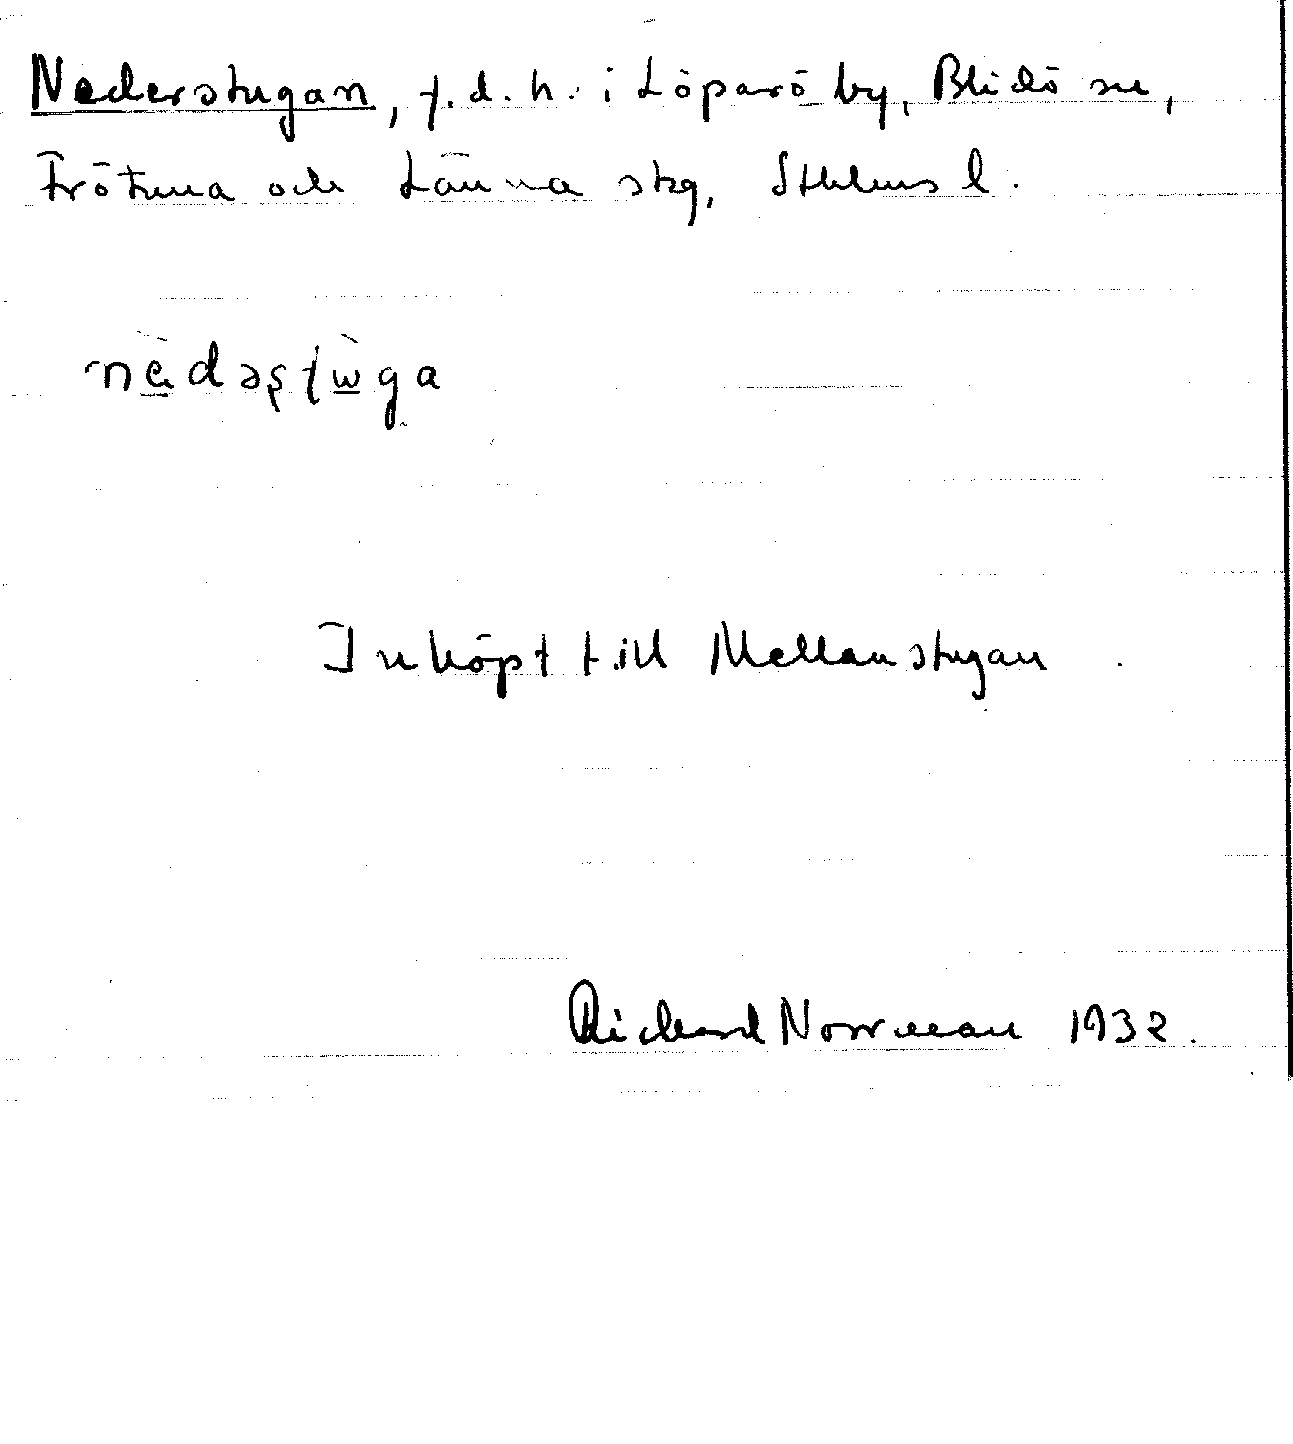 Nederstugan, f.d. h. i Löparö by, Blidö sn,
Frötuna och Länna skg, Sthlms l.
nèdəʂtẁga
Inköpt till Mellanstugan.
Richard Norrman 1932.